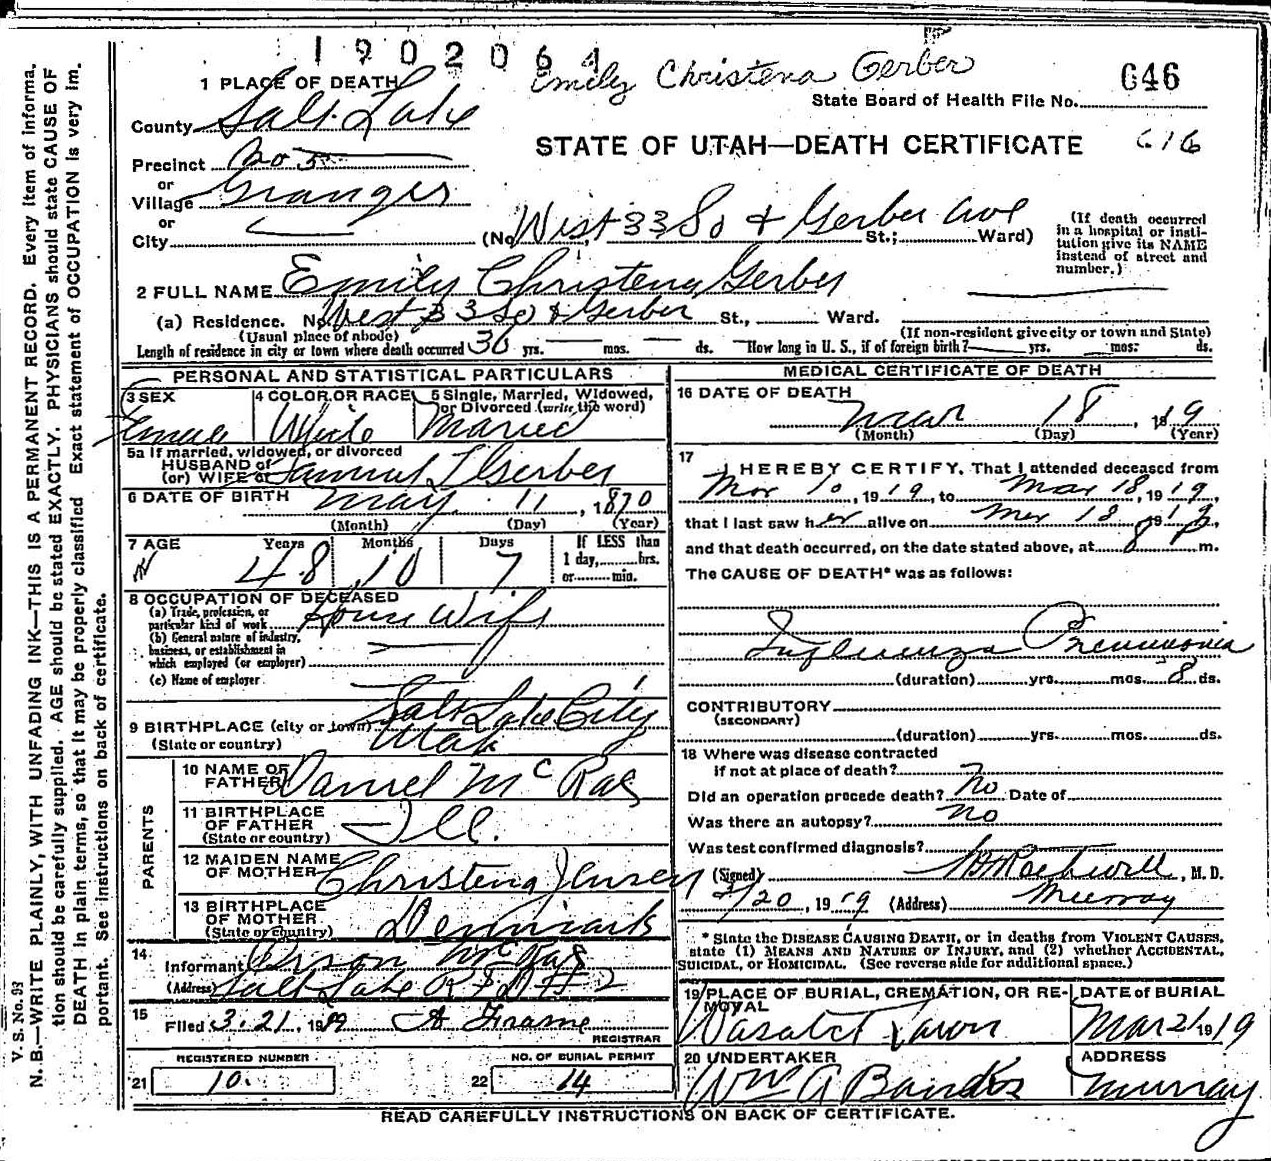 1902064
Emily Christena Gerber
646
1 PLACE OF DEATH
State Board of Health File No.
County Salt Lake
STATE OF UTAH—DEATH CERTIFICATE 616
Precinct No 5
or
Village Granger
or
City (No West 33 So & Gerber Ave St.; Ward)
(If death occurred in a hospital or insti-
tution give its NAME
instead of street and
number.)
2 FULL NAME Emily Christena Gerber
(a) Residence. No West 33 So & Gerber St., Ward.
(Usual place of abode) (If non-resident give city or town and State)
Length of residence in city or town where death occurred 30 yrs. mos. ds. How long in U. S., if of foreign birth? yrs. mos. ds.
PERSONAL AND STATISTICAL PARTICULARS
3 SEX Female
4 COLOR OR RACE White
5 Single, Married, Widowed,
or Divorced (write the word)
Married
5a If married, widowed, or divorced
HUSBAND of
(or) WIFE of Samuel L Gerber
6 DATE OF BIRTH May 11, 1870
(Month) (Day) (Year)
7 AGE Years Months Days If LESS than
48 10 7 1 day, hrs.
or min.
8 OCCUPATION OF DECEASED
(a) Trade, profession, or
particular kind of work House Wife
(b) General nature of industry,
business, or establishment in
which employed (or employer)
(c) Name of employer
9 BIRTHPLACE (city or town) Salt Lake City
(State or country) Utah
PARENTS
10 NAME OF
FATHER Daniel McRae
11 BIRTHPLACE
OF FATHER Ill.
(State or country)
12 MAIDEN NAME
OF MOTHER Christena Jensen
13 BIRTHPLACE
OF MOTHER Denmark
(State or country)
14
Informant Orson McRae
(Address) Salt Lake RFD #2
15
Filed 3.21, 1919 A Frame
REGISTRAR
REGISTERED NUMBER
21 10.
NO. OF BURIAL PERMIT
22 14
MEDICAL CERTIFICATE OF DEATH
16 DATE OF DEATH
Mar 18, 1919
(Month) (Day) (Year)
17
I HEREBY CERTIFY, That I attended deceased from
Mar 10, 1919, to Mar 18, 1919,
that I last saw her alive on Mar 18, 1919,
and that death occurred, on the date stated above, at 8 P m.
The CAUSE OF DEATH* was as follows:
Influenza Pneumonia
(duration) yrs. mos. 8 ds.
CONTRIBUTORY
(SECONDARY)
(duration) yrs. mos. ds.
18 Where was disease contracted
if not at place of death?
Did an operation precede death? No Date of
Was there an autopsy? No
Was test confirmed diagnosis?
(Signed) Rothwell, M. D.
3/20, 1919 (Address) Murray
* State the DISEASE CAUSING DEATH, or in deaths from VIOLENT CAUSES,
state (1) MEANS AND NATURE OF INJURY, and (2) whether ACCIDENTAL,
SUICIDAL, or HOMICIDAL. (See reverse side for additional space.)
19 PLACE OF BURIAL, CREMATION, OR RE-
MOVAL
Wasatch Lawn
DATE of BURIAL
Mar 21 1919
20 UNDERTAKER
Wm A
ADDRESS
Murray
READ CAREFULLY INSTRUCTIONS ON BACK OF CERTIFICATE.
V. S. No. 93
N. B.—WRITE PLAINLY, WITH UNFADING INK—THIS IS A PERMANENT RECORD. Every item of informa-
tion should be carefully supplied. AGE should be stated EXACTLY. PHYSICIANS should state CAUSE OF
DEATH in plain terms, so that it may be properly classified Exact statement of OCCUPATION is very im-
portant. See instructions on back of certificate.